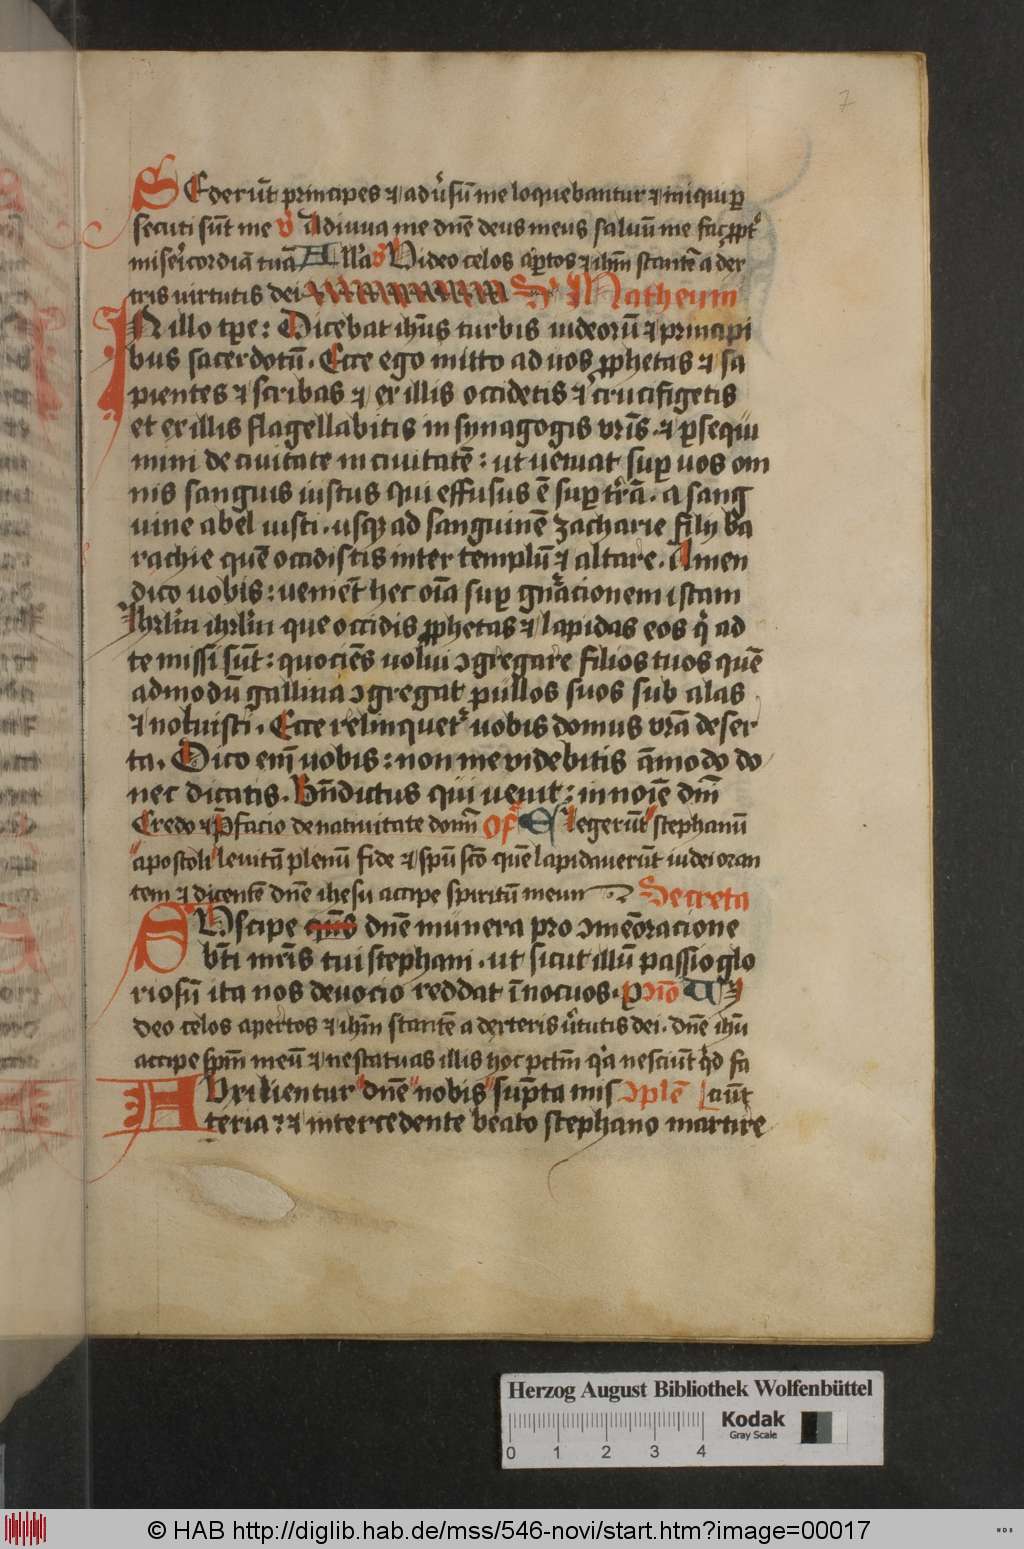 7
SEderūt principes ⁊ adũsū me loquebantur ⁊ iniqui ꝑ
secuti sūt me v Adiuua me dnē deus meus saluū me fac ꝓpt̓
miserīcordiā tuā All'a V Video celos aꝑtos ⁊ ihm̄ stantē a dex
tris uirtutis dei Matheum
IN illo tꝑe: Dicebat ihūs turbis iudeorū ⁊ principi
bus sacerdotū. Ecce ego mitto ad uos ꝓphetas ⁊ sa
pientes ⁊ scribas ⁊ ex illis occidetis ⁊ crucifigetis
et ex illis flagellabitis in synagogis vr̄is ⁊ ꝑsequi
mini de ciuitate in ciuitatē: ut ueniat suꝑ uos om
nis sanguis iustus qui effusus ē suꝑ tr̄ā. a sang
uine abel iusti. usqꝫ ad sanguinē zacharie filij ba
rachie quē occidistis inter templū ⁊ altare. Amen
dico uobis: uenient hec oīa suꝑ gn̄acionem istam
Ihrlm̄ ihrlm̄ que occidis ꝓphetas ⁊ lapidas eos q̄ ad
te missi sūt: quociēs uolui ↄgregare filios tuos quē
admodū gallina ↄgregat pullos suos sub alas
⁊ noluisti. Ecce relinquet̓ uobis domus vr̄a deser
ta. Dico enī uobis: non me videbitis āmodo do
nec dicatis. Bn̄dictus qui uenit: in noīe dnī
Credo ⁊ P̄facio de natiuitate domī Of Elegerūt stephanū
apostoli leuitā plenū fide ⁊ spū sc̄o quē lapidauerūt iudei oran
tem ⁊ dicentē dnē ihesu accipe spiritū meum Secreta
SUscipe qūs dnē munera pro ↄmeōracione
bt̄i mr̄is tui stephani. ut sicut illū passio glo
riosū ita nos deuocio reddat īnocuos. ꝯmō Vi
deo celos apertos ⁊ ihm̄ stantē a dexteris ũtutis dei. dnē ihū
accipe spm̄ meū ⁊ ne statuas illis hoc pctm̄ q̄a nesciūt q̄d fa
AUxilientur dnē nobis sūpta mis ↄplē ciūt
teria: ⁊ intercedente beato stephano martire
Herzog August Bibliothek Wolfenbüttel
Kodak
Gray Scale
0 1 2 3 4
© HAB http://diglib.hab.de/mss/546-novi/start.htm?image=00017